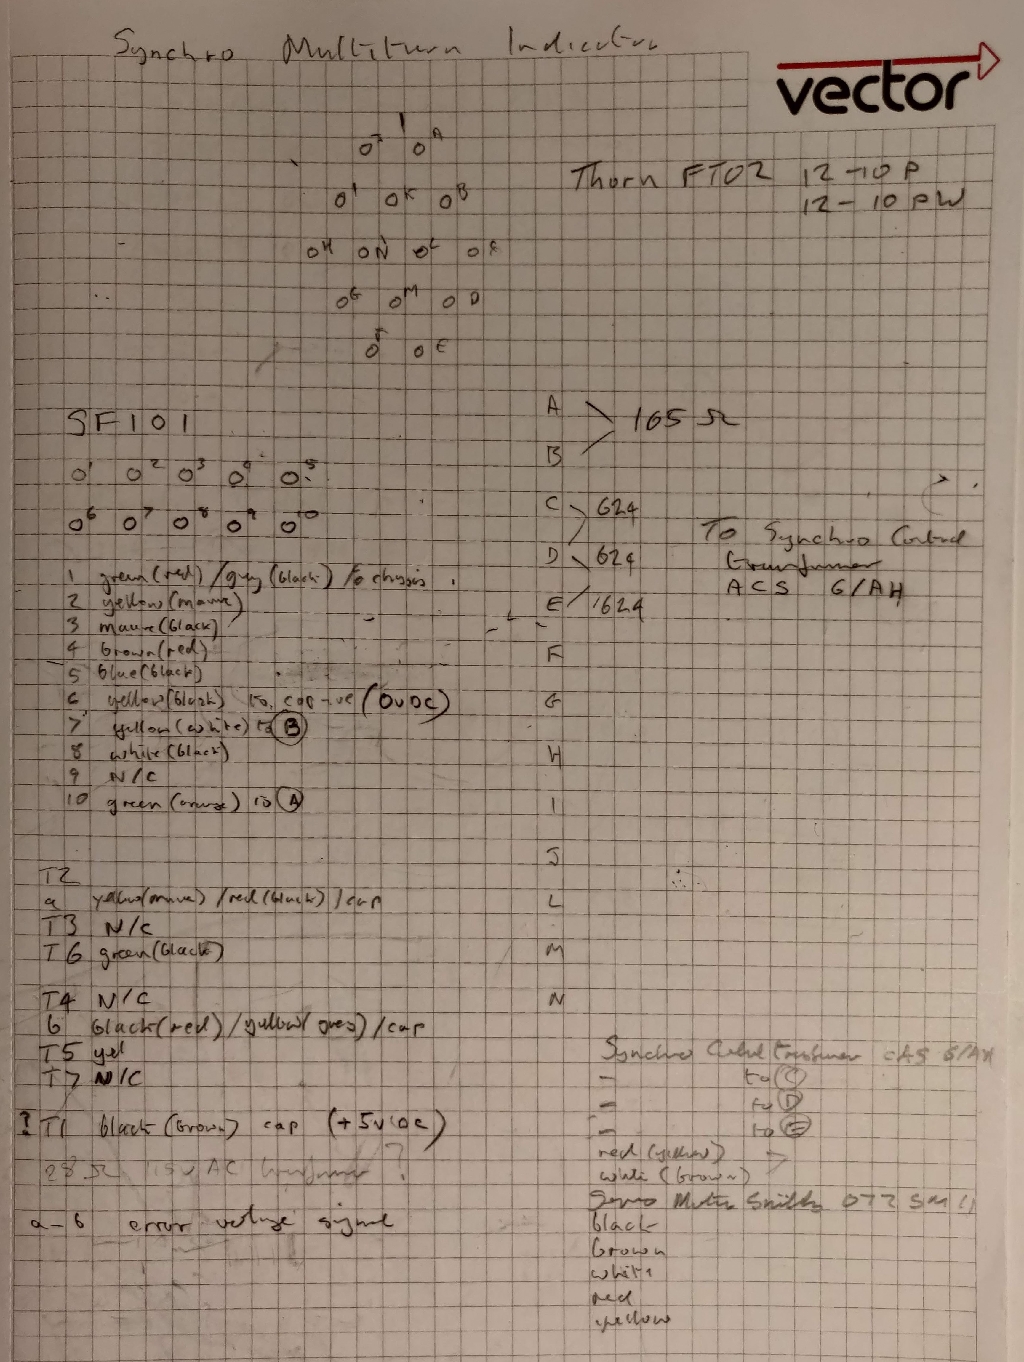 Synchro Multiturn Indicator
vector
Thorn FT02 12-10 P
12-10 PW
J A
I K B
H N L C
G M D
F E
SF101
1 2 3 4 5
6 7 8 9 10
1 green(red)/grey(black) to chassis
2 yellow(mauve)
3 mauve(black)
4 brown(red)
5 blue(black)
6 yellow(black) to cap -ve (0vDC)
7 yellow(white) to B
8 white(black)
9 N/C
10 green(mauve) to A
T2
a yellow(mauve)/red(black)/cap
T3 N/C
T6 green(black)
T4 N/C
b black(red)/yellow(grey)/cap
T5 yel
T7 N/C
? T1 black(brown) cap (+5vDC)
28Ω 115v AC transformer ?
a-b error voltage signal
A
165Ω
B
C 624
D 624
E 1624
F
G
H
I
J
L
M
N
To Synchro Control
transformer
ACS 6/AH
Synchro Control Transformer CAS 6/AH
- to C
- to D
- to E
red (yellow)
white (brown)
Servo Motor Smiths 072 SM 11
black
brown
white
red
yellow